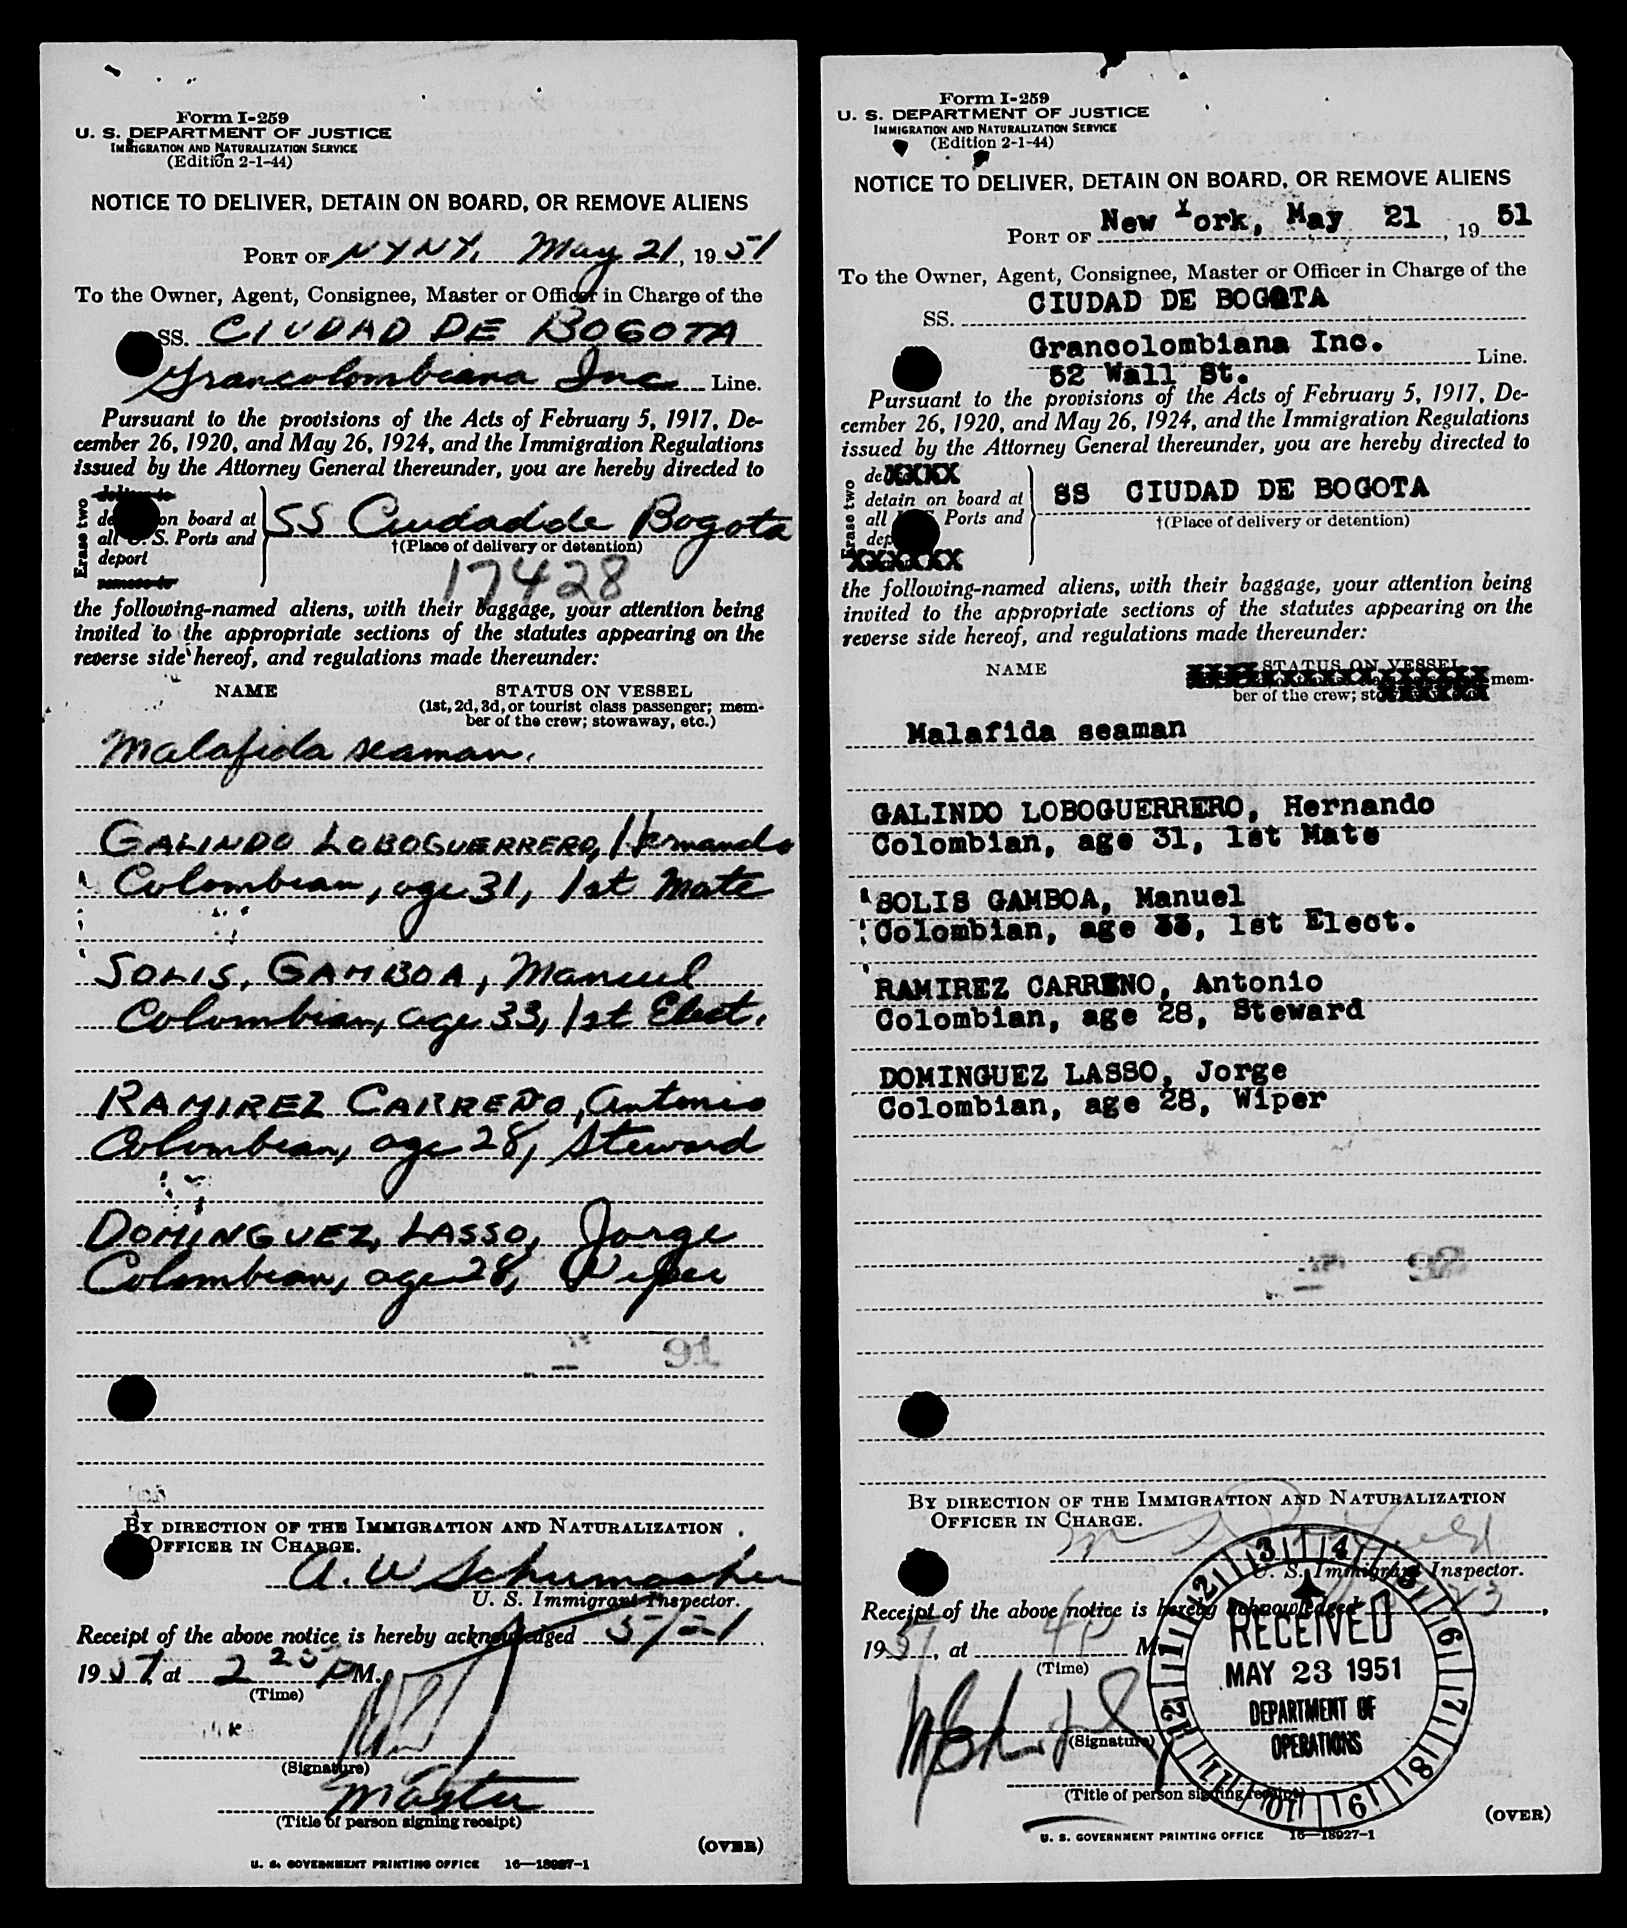 Form I-259
U. S. DEPARTMENT OF JUSTICE
IMMIGRATION AND NATURALIZATION SERVICE
(Edition 2-1-44)
NOTICE TO DELIVER, DETAIN ON BOARD, OR REMOVE ALIENS
PORT OF NYNY. May 21, 1951
To the Owner, Agent, Consignee, Master or Officer in Charge of the
SS. CIUDAD DE BOGOTA
Grancolombiana Inc. Line.
Pursuant to the provisions of the Acts of February 5, 1917, De-
cember 26, 1920, and May 26, 1924, and the Immigration Regulations
issued by the Attorney General thereunder, you are hereby directed to
Erase two
deliver to
on board at
all U. S. Ports and
deport
remove to
SS Ciudad de Bogota
†(Place of delivery or detention)
17428
the following-named aliens, with their baggage, your attention being
invited to the appropriate sections of the statutes appearing on the
reverse side hereof, and regulations made thereunder:
NAME STATUS ON VESSEL
(1st, 2d, 3d, or tourist class passenger; mem-
ber of the crew; stowaway, etc.)
Malafida seaman.
GALINDO LOBOGUERRERO, Hernando
Colombian, age 31, 1st Mate
SOLIS, GAMBOA, Manuel
Colombian, age 33, 1st Elect.
RAMIREZ CARREÑO, Antonio
Colombian, age 28, Steward
DOMINGUEZ, LASSO, Jorge
Colombian, age 28, Wiper
91
BY DIRECTION OF THE IMMIGRATION AND NATURALIZATION
OFFICER IN CHARGE.
A. W Schumacher
U. S. Immigrant Inspector.
Receipt of the above notice is hereby acknowledged 5/21
1951, at 2 25 PM.
(Time)
(Signature)
Master
(Title of person signing receipt)
(OVER)
U. S. GOVERNMENT PRINTING OFFICE 16—18927-1
Form I-259
U. S. DEPARTMENT OF JUSTICE
IMMIGRATION AND NATURALIZATION SERVICE
(Edition 2-1-44)
NOTICE TO DELIVER, DETAIN ON BOARD, OR REMOVE ALIENS
PORT OF New York, May 21, 1951
To the Owner, Agent, Consignee, Master or Officer in Charge of the
SS. CIUDAD DE BOGOTA
Grancolombiana Inc. Line.
52 Wall St.
Pursuant to the provisions of the Acts of February 5, 1917, De-
cember 26, 1920, and May 26, 1924, and the Immigration Regulations
issued by the Attorney General thereunder, you are hereby directed to
Erase two
deXXXX
detain on board at
all U. S. Ports and
dep
XXXXXX
SS CIUDAD DE BOGOTA
†(Place of delivery or detention)
the following-named aliens, with their baggage, your attention being
invited to the appropriate sections of the statutes appearing on the
reverse side hereof, and regulations made thereunder:
NAME STATUS ON VESSEL
mem-
ber of the crew; sto
Malafida seaman
GALINDO LOBOGUERRERO, Hernando
Colombian, age 31, 1st Mate
SOLIS GAMBOA, Manuel
Colombian, age 33, 1st Elect.
RAMIREZ CARRENO, Antonio
Colombian, age 28, Steward
DOMINGUEZ LASSO, Jorge
Colombian, age 28, Wiper
BY DIRECTION OF THE IMMIGRATION AND NATURALIZATION
OFFICER IN CHARGE.
U. S. Immigrant Inspector.
Receipt of the above notice is hereby acknowledged 23,
1951, at M.
(Time)
(Signature)
(Title of person signing receipt)
1 2 3 4 5 6 7 8 9 10 11 12
RECEIVED
MAY 23 1951
DEPARTMENT OF
OPERATIONS
(OVER)
U. S. GOVERNMENT PRINTING OFFICE 16—18927-1